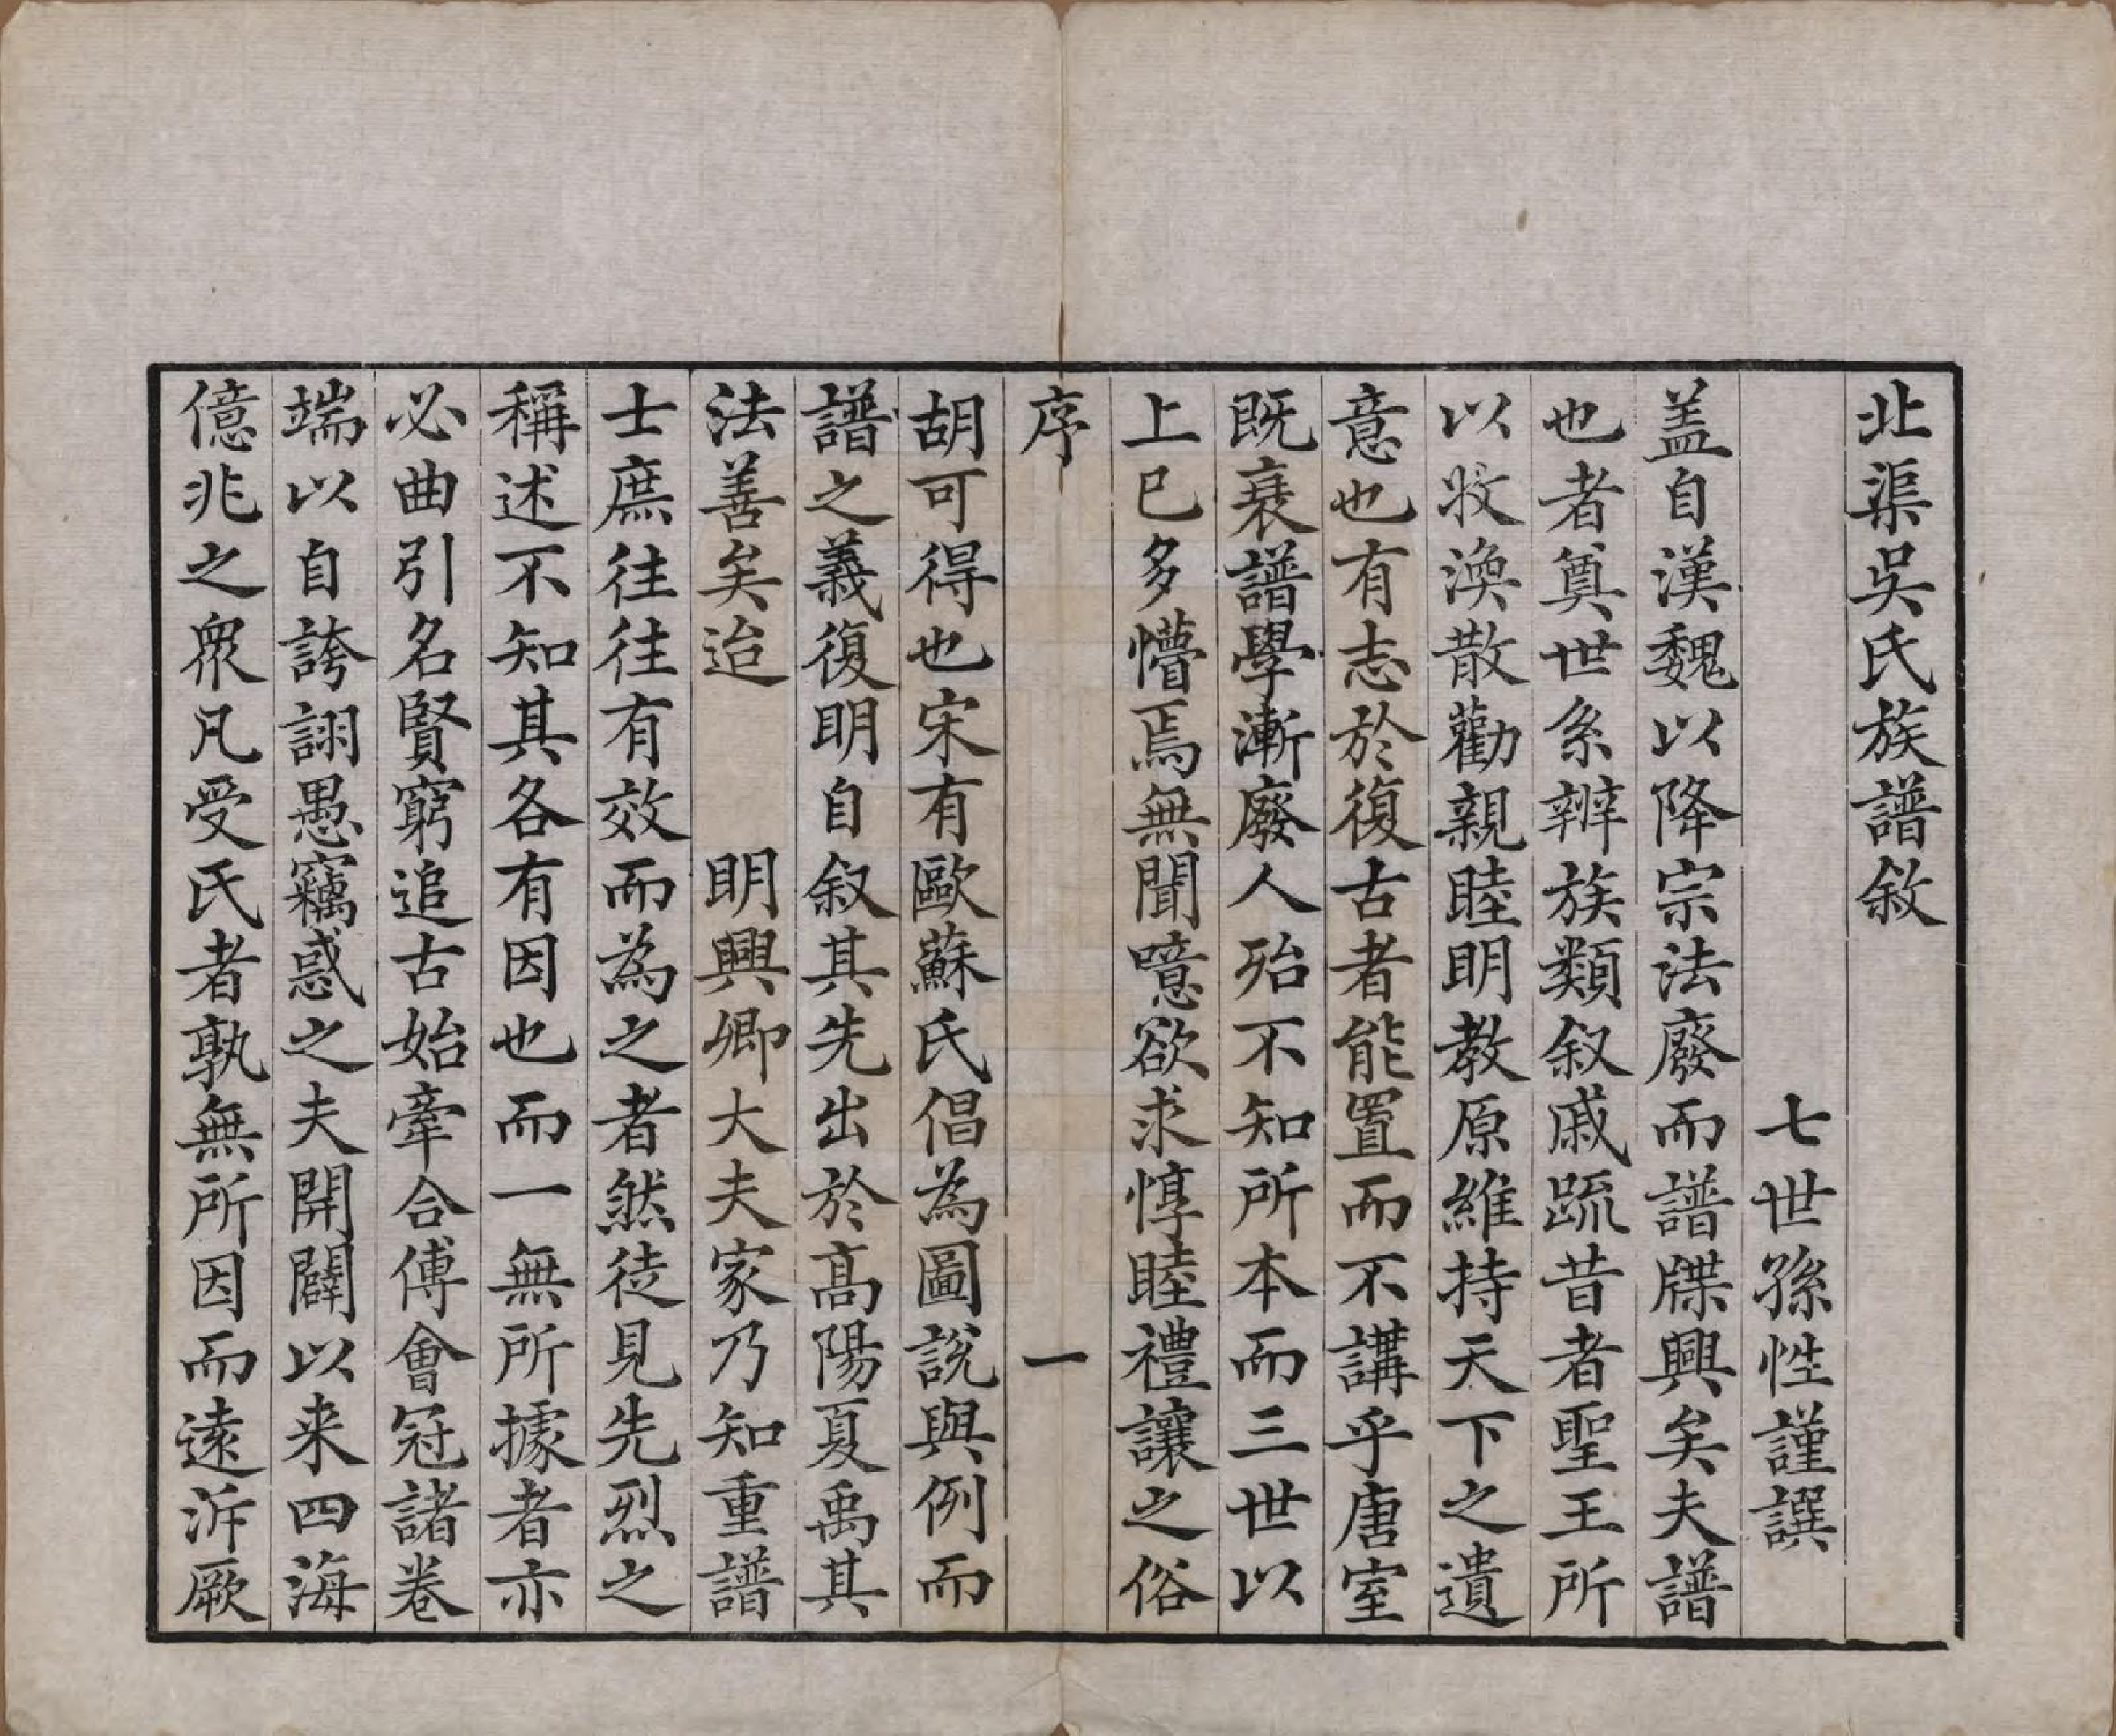 北渠吳氏族譜敘
七世孫性謹譔
盖自漢魏以降宗法廢而譜牒興矣夫譜
也者奠世系辨族類叙戚䟽昔者聖王所
以收渙散勸親睦明教原維持天下之遺
意也有志於復古者能置而不講乎唐室
既衰譜學漸廢人殆不知所本而三世以
上已多懵焉無聞噫欲求惇睦禮讓之俗
序
一
胡可得也宋有歐蘇氏倡為圖說與例而
譜之義復明自叙其先出於高陽夏禹其
法善矣迨
明興卿大夫家乃知重譜
士庶往往有效而為之者然徒見先烈之
稱述不知其各有因也而一無所據者亦
必曲引名賢窮追古始牽合傅會冠諸卷
端以自誇詡愚竊惑之夫開闢以来四海
億兆之衆凡受氏者孰無所因而遠泝厥